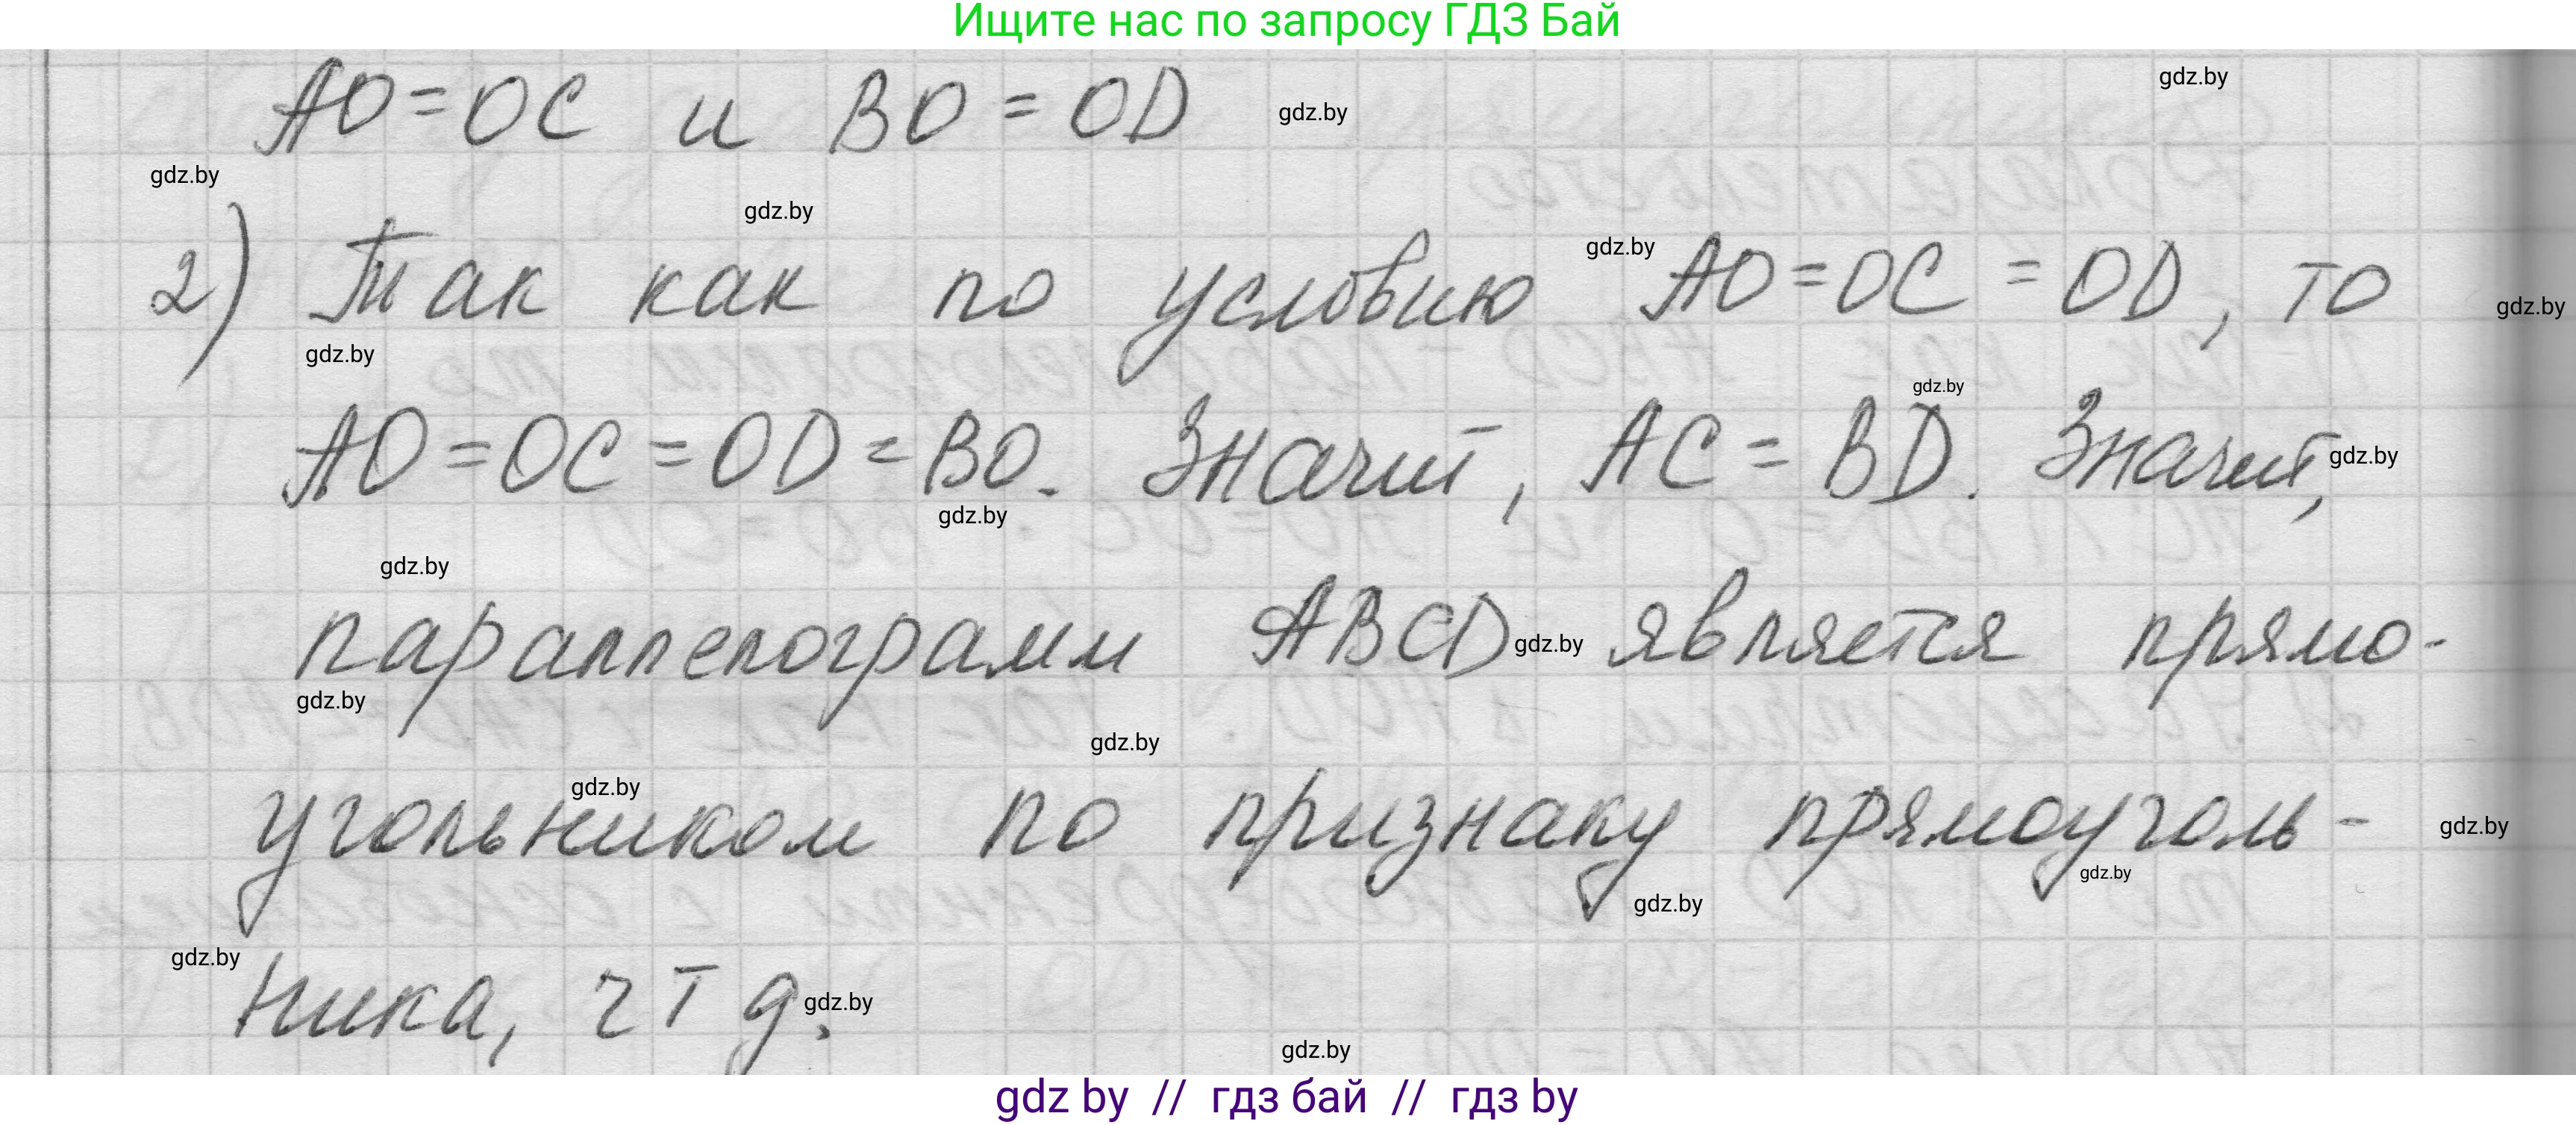 Ищите нас по запросу ГДЗ Бай
AO = OC и BO = OD
gdz.by
gdz.by
gdz.by
gdz.by
2) Так как по условию AO = OC = OD, то
gdz.by
gdz.by
gdz.by
gdz.by
AO = OC = OD = BO. Значит, AC = BD. Значит,
gdz.by
gdz.by
gdz.by
параллелограмм ABCD является прямо-
gdz.by
gdz.by
gdz.by
gdz.by
угольником по признаку прямоуголь-
gdz.by
gdz.by
gdz.by
gdz.by
ника, ч т д.
gdz.by
gdz.by
gdz by // гдз бай // гдз by